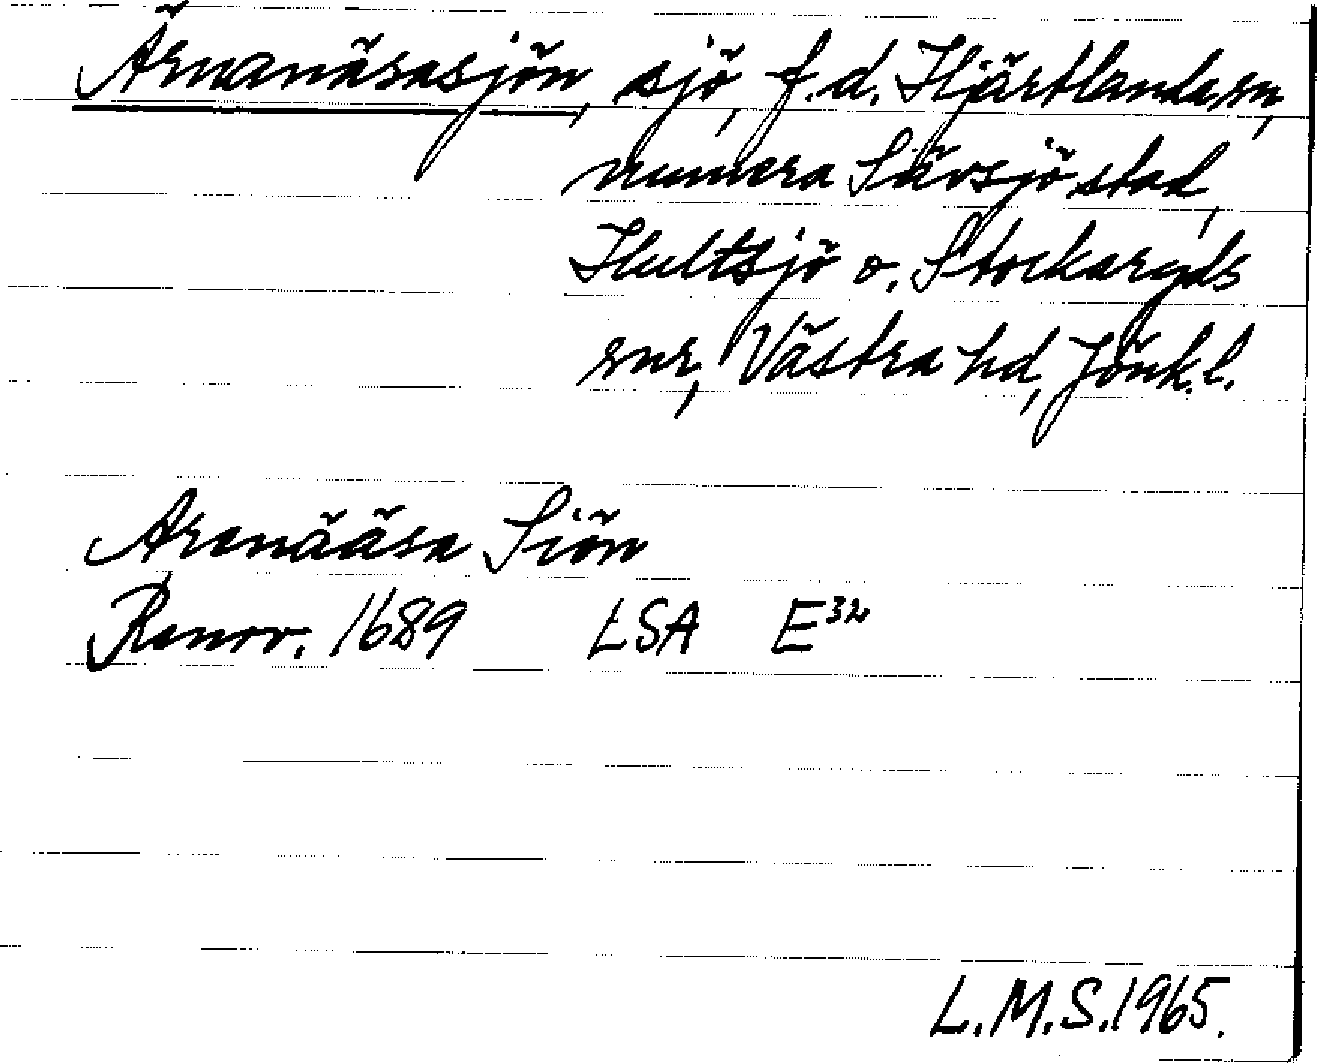 Ärnanäsasjön, sjö, f.d. Hjärtlanda sn,
numera Sävsjö stad,
Hultsjö o. Stockaryds
snr, Västra hd, Jönk.l.
Arenääsa Siön
Renov. 1689 LSA E³²
L.M.S. 1965.